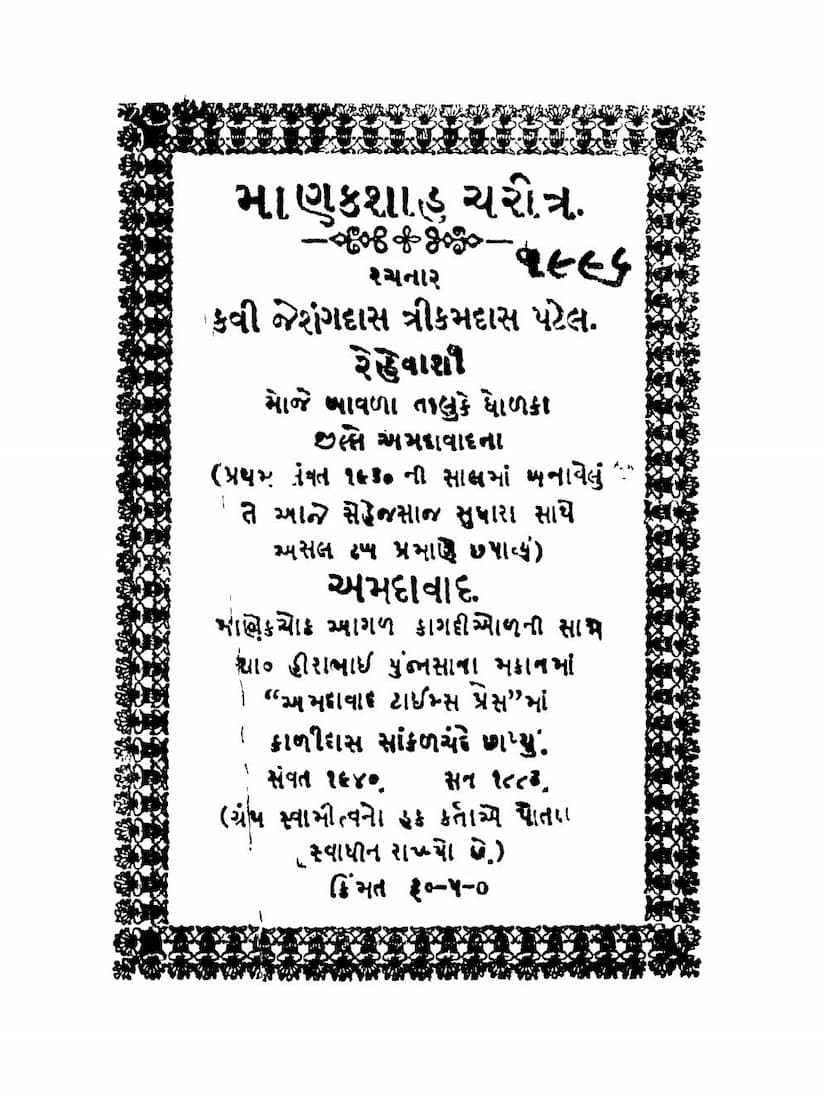 માણકશાહ ચરીત્ર.
૧૯૯૬
રચનાર
કવી જેશંગદાસ ત્રીકમદાસ પટેલ.
રેહેવાશી
મોજે બાવળા તાલુકે ધોળકા
જીલ્લે અમદાવાદના
(પ્રથમ સંવત ૧૯૩૦ ની સાલમાં બનાવેલું
તે આજે સેહેજસાજ સુધારા સાથે
અસલ ઢપ પ્રમાણે છપાવ્યું)
અમદાવાદ.
માણેકચોક આગળ કાગદીઓળની સામે
શા૦ હીરાભાઈ પુંજાસાના મકાનમાં
“અમદાવાદ ટાઈમ્સ પ્રેસ”માં
કાળીદાસ સાંકળચંદે છાપ્યું.
સંવત ૧૯૪૦. સન ૧૮૮૩.
(ગ્રંથ સ્વામીત્વનો હક કર્તાએ પોતાના
સ્વાધીન રાખ્યો છે.)
કિંમત રૂ૦-૫-૦